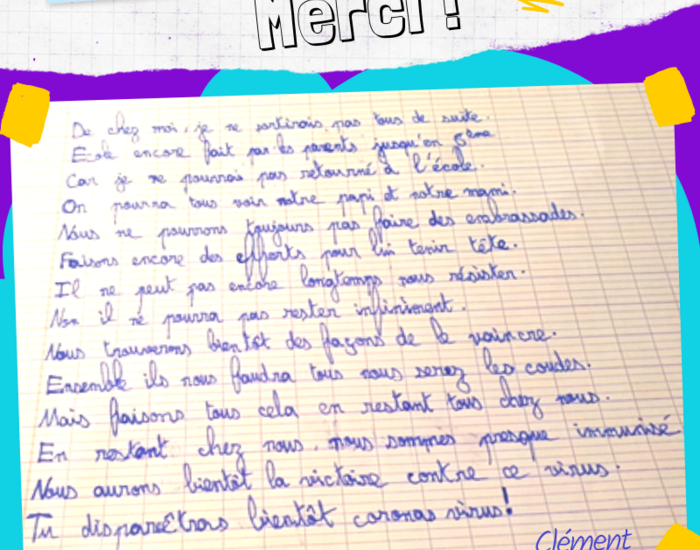 Merci !
De chez moi, je ne sortirais pas tous de suite.
Ecole encore fait par les parents jusqu'en 5ème
Car je ne pourrai pas retourné à l'école.
On pourra tous voir notre papi et notre mami.
Nous ne pourrons toujours pas faire des embrassades.
Faisons encore des efforts pour lui tenir tête.
Il ne peut pas encore longtemps nous résister.
Non il ne pourra pas rester infiniment.
Nous trouverons bientôt des façons de le vaincre.
Ensemble ils nous faudra tous nous serez les coudes.
Mais faisons tous cela en restant tous chez nous.
En restant chez nous, nous sommes presque immunisé
Nous aurons bientôt la victoire contre ce virus.
Tu disparaêtras bientôt coronas virus!
Clément